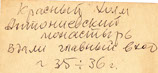 Красный холм
Антониевский
монастырь
взяли главный вход
г 35÷36 г.